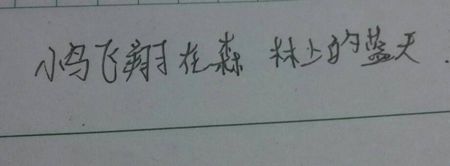 小鸟飞翔在森林上的蓝天.